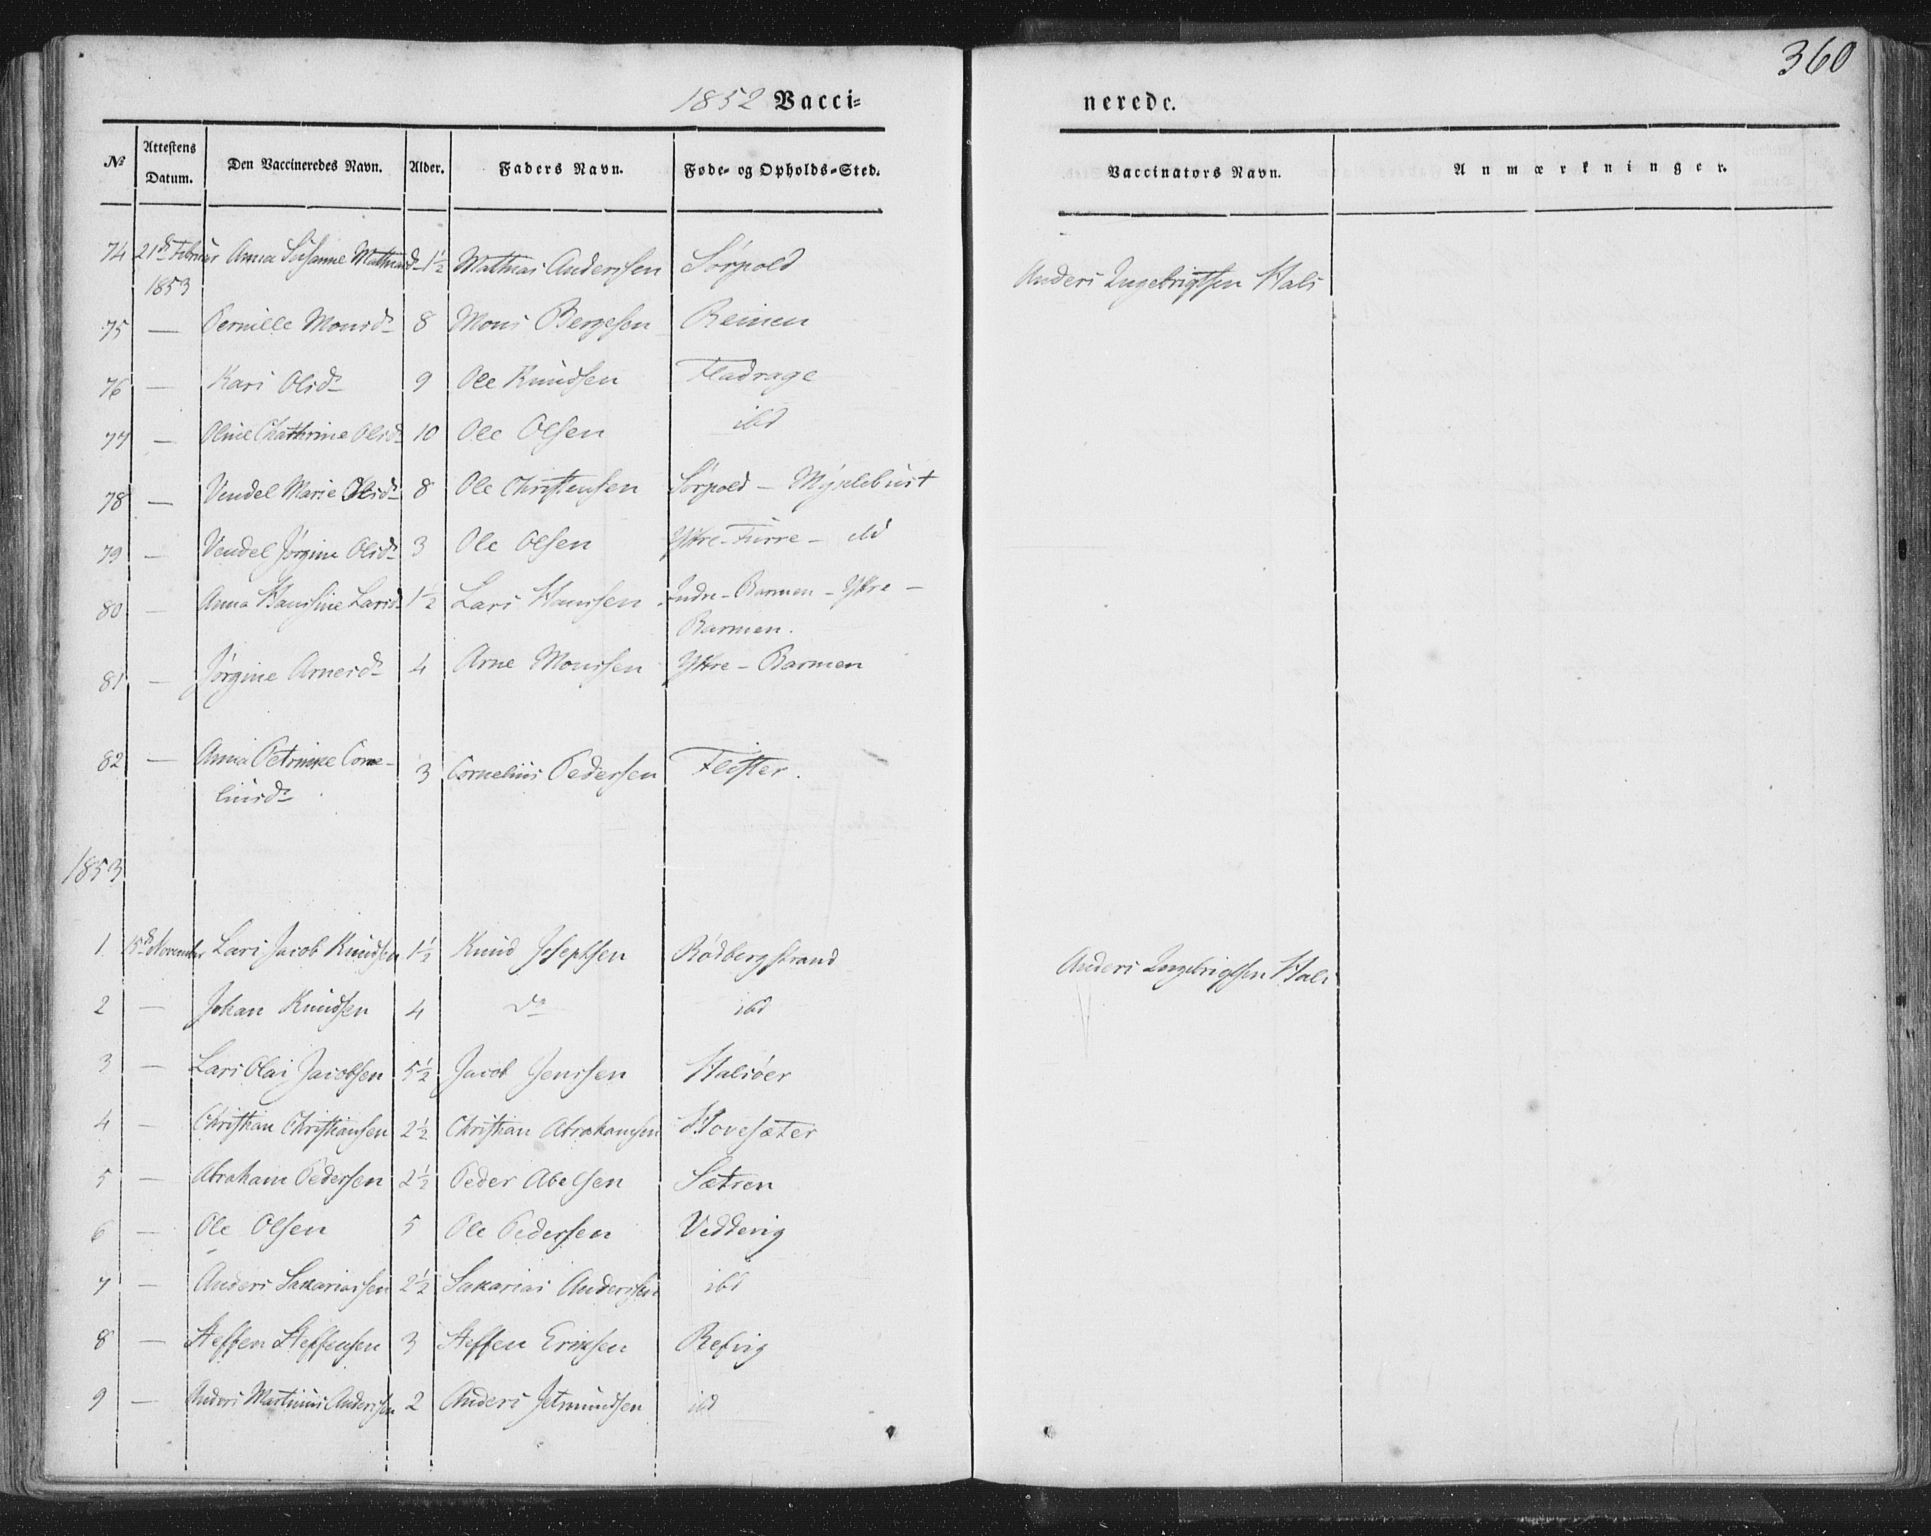 360
1852 Vacci= nerede.
№ Attestens Datum. Den Vaccineredes Navn. Alder. Faders Navn. Føde- og Opholds-Sted. Vaccinators Navn. Anmærkninger.
74 21de Februar 1853 Anna Susanne Mathiasd. 1½ Mathias Anderssen Sørpold Anders Ingebrigtsen Hals
75 — Pernille Monsdr 8 Mons Bergeson Reimen
76 — Kari Olsdr 9 Ole Knudsen Fladrage
77 — Oline Chathrine Olsdr 10 Ole Olsen ibd
78 — Vendel Marie Olsdr 8 Ole Christensen Sørpold — Myklebust
79 — Vendel Jørgine Olsdr 3 Ole Olsen Yttre-Furre — ibd
80 — Anna Hansine Larsd. 1½ Lars Hanssen Indre-Barmen — Yttre —
Barmen.
81 — Jørgine Arnesdr 4 Arne Monssen Yttre-Barmen
82 — Anna Petrikke Corne-
liusdr 3 Cornelius Pedersen Flister.
1853
1 15de November Lars Jacob Knudsen 1½ Knud Josephsen Rødbergstrand Anders Ingebrigtsen Hals
2 — Johan Knudsen 4 do ibd
3 — Lars Olai Jacobsen 5½ Jacob Jenssen Halsøer
4 — Christian Christiansen 2½ Christian Abrahamsen Hovesæter
5 — Abraham Pedersen 2½ Peder Abelsen Sætren
6 — Ole Olsen 5 Ole Pedersen Vedderig
7 — Anders Sakariassen 2½ Sakarias Anderssen ibd
8 — Steffen Steffensen 3 Steffen Eriksen Refvig
9 — Anders Martinus Anderssen 2 Anders Jetmundsen ibd